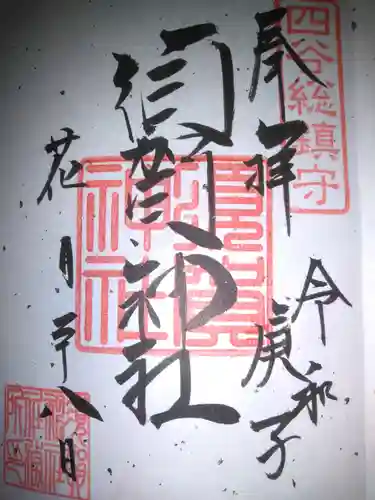 四谷総鎮守
奉拝
令和庚子
須賀神社
須賀神社
花月二十八日